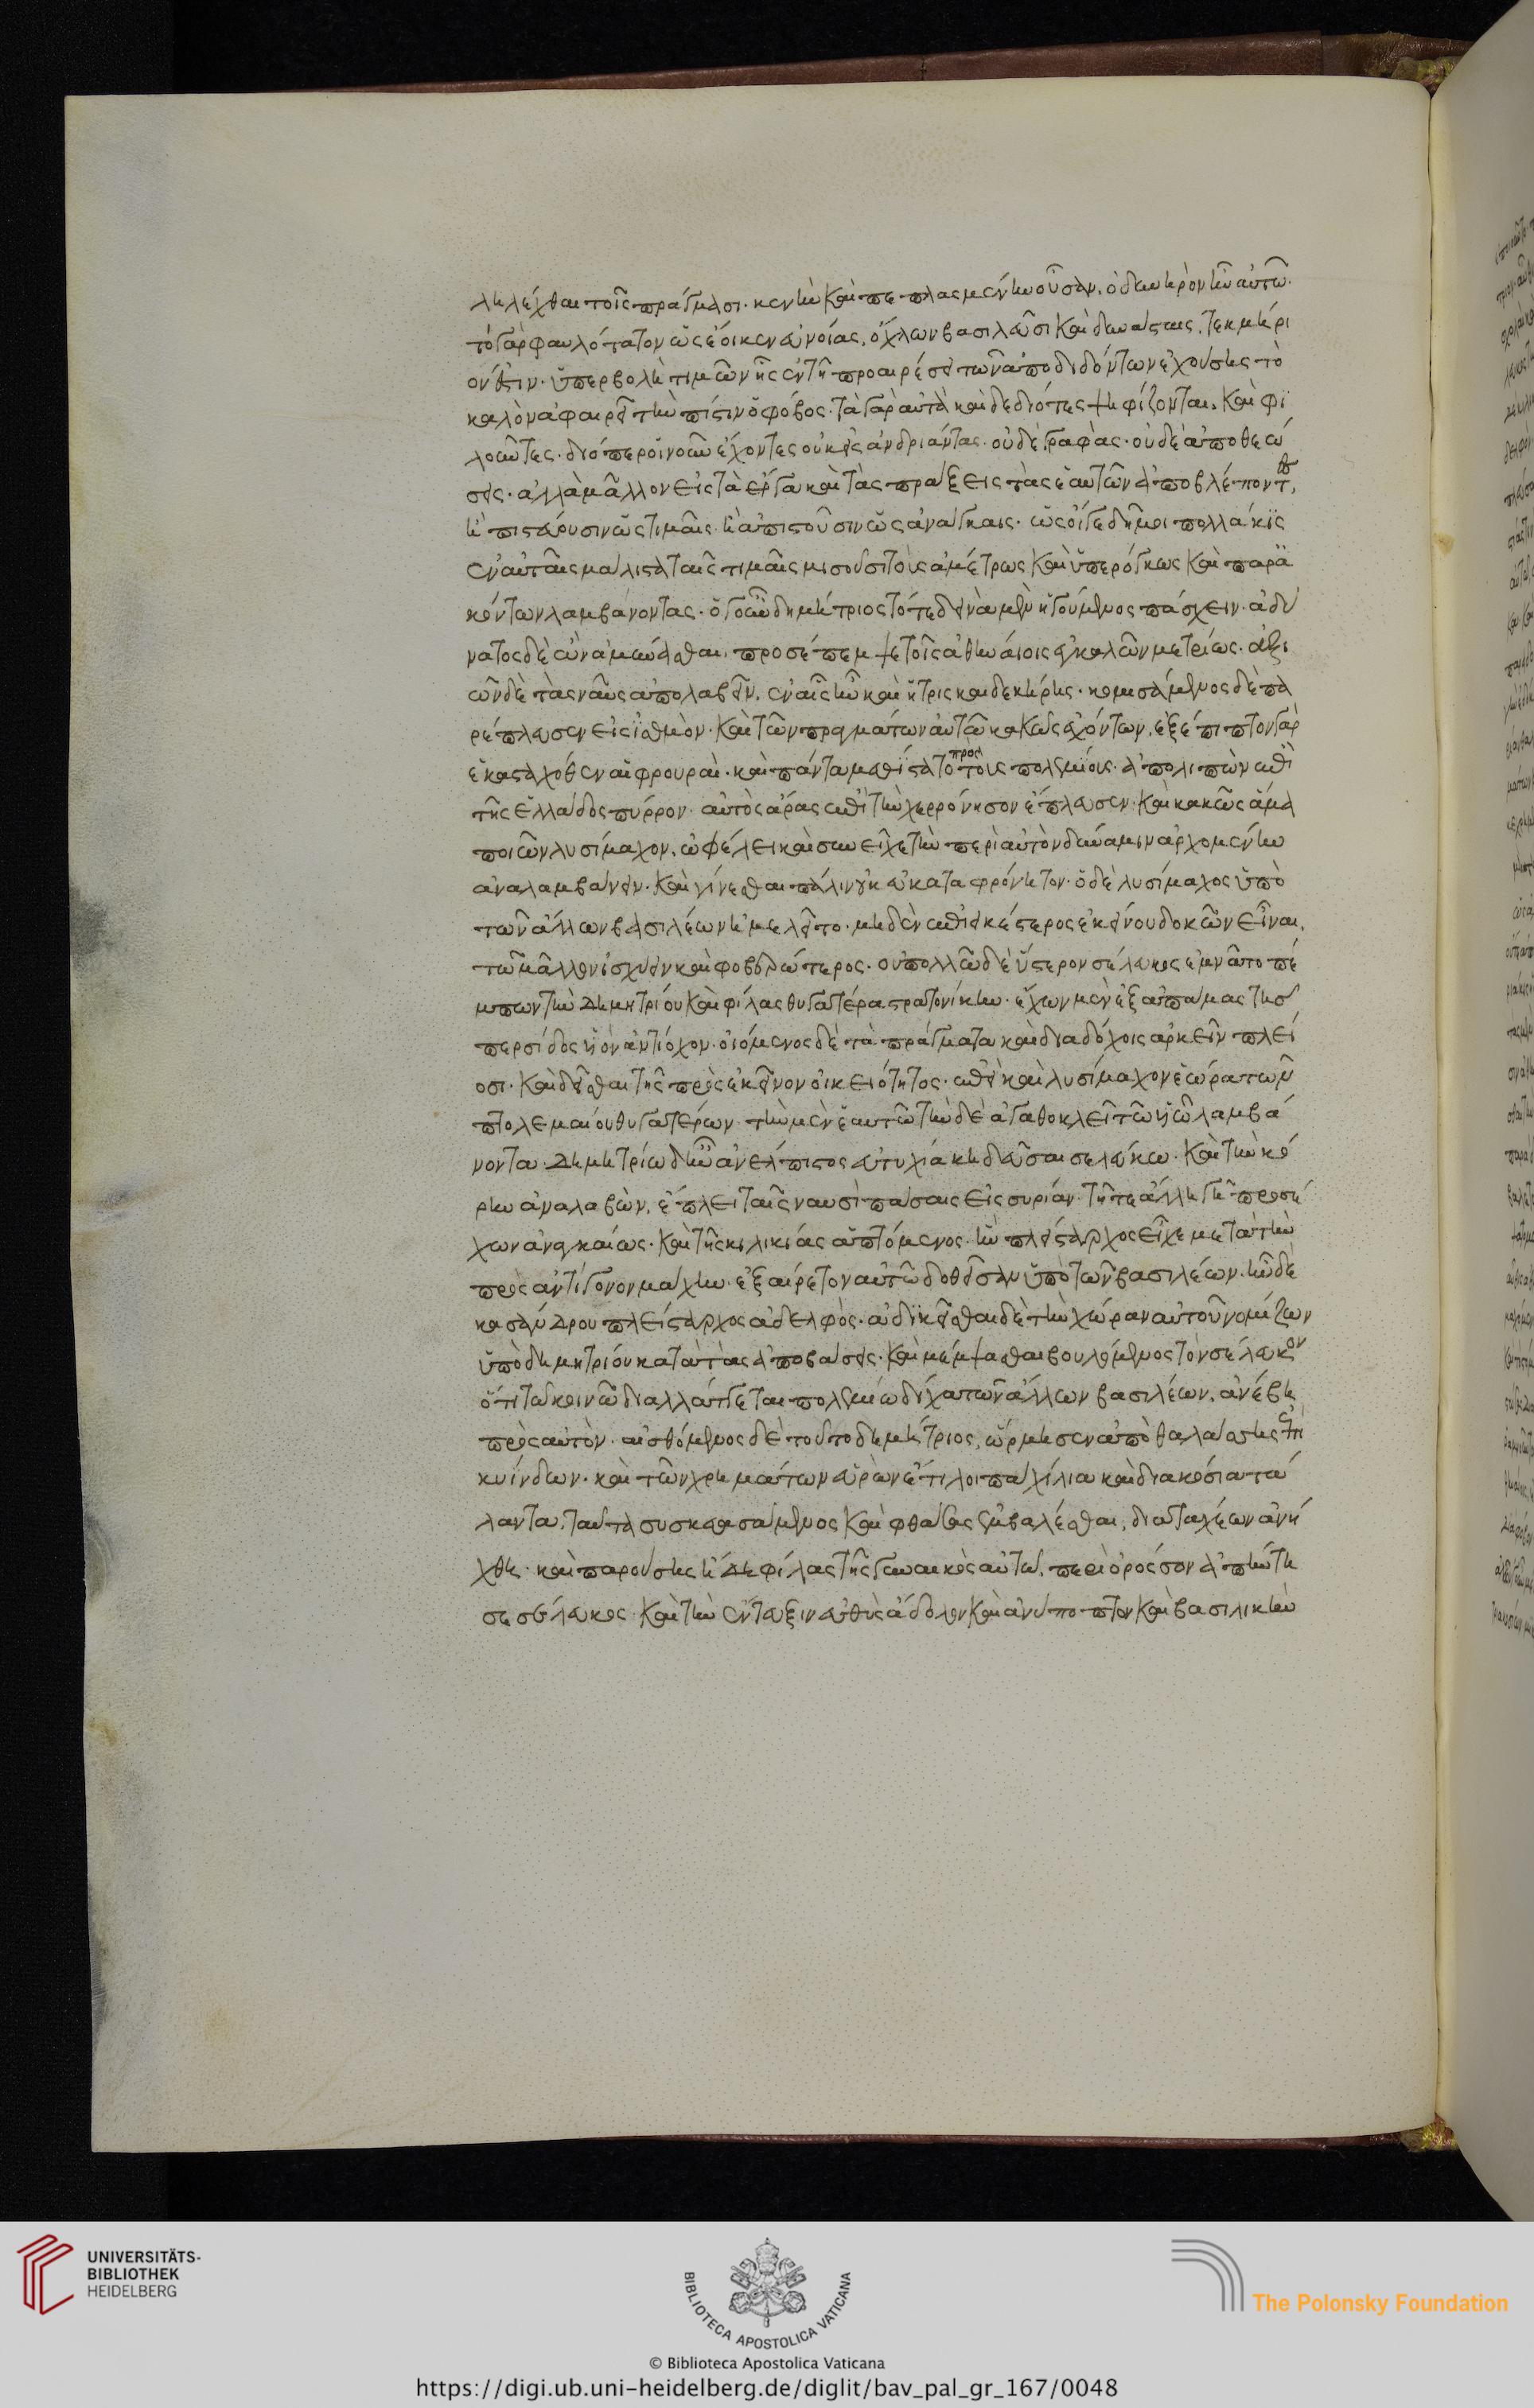 λελέχθαι τοῖς πράγμασι. κενὴν καὶ πεπλασμένην οὖσαν. ὃ δεινότερον ἦν αὐτῶ.
τὸ γὰρ φαυλότατον ὡς ἔοικεν εὐνοίας, ὄχλων βασιλεῦσι καὶ δυνάσταις, τεκμήρι
όν ἐστιν. ὑπερβολὴ τιμῶν ἧς ἐν τῆ προαιρέσει τῶν ἀποδιδόντων ἐχούσης τὸ
καλὸν ἀφαιρεῖ τὴν πίστιν ὁ φόβος. τὰ γὰρ αὐτὰ καὶ δεδιότες ψηφίζονται, καὶ φι
λοῦντες. διόπερ οἱ νοῦν ἔχοντες οὐκ εἰς ἀνδριάντας. οὐδὲ γραφὰς. οὐδὲ ἀποθεώ
σεις. ἀλλὰ μᾶλλον εἰς τὰ ἔργα καὶ τὰς πράξεις τὰς ἑαυτῶν ἀποβλέποντες,
ἢ πιστεύουσιν ὡς τιμαῖς. ἢ ἀπιστοῦσιν ὡς ἀνάγκαις. ὡς οἵ γε δῆμοι πολλάκις
ἐν αὐταῖς μάλιστα ταῖς τιμαῖς μισοῦσι τοὺς ἀμέτρως καὶ ὑπερόγκως καὶ παρ' ἀ
κόντων λαμβάνοντας. ὁ γοῦν δημήτριος τότε δεινὰ μὲν ἡγούμενος πάσχειν. ἀδύ
νατος δὲ ὢν ἀμύνασθαι, προσέπεμψε τοῖς ἀθηναίοις ἐγκαλῶν μετρίως. ἀξι
ῶν δὲ τὰς ναῦς ἀπολαβεῖν, ἐν αἷς ἦν καὶ ἡ τρισκαιδεκήρης. κομισάμενος δὲ πα
ρέπλευσεν εἰς ἰσθμὸν. καὶ τῶν πραγμάτων αὐτῶ κακῶς ἐχόντων. ἐξέπιπτον γὰρ
ἑκασταχόθεν αἱ φρουραὶ. καὶ πάντα μεθίστατο πρὸς τοὺς πολεμίους. ἀπολιπὼν ἐπὶ
τῆς ἑλλάδος πύρρον. αὐτὸς ἄρας ἐπὶ τὴν χερρόνησον ἔπλευσεν. καὶ κακῶς ἅμα
ποιῶν λυσίμαχον, ὠφέλει καὶ συνεῖχε τὴν περὶ αὐτὸν δύναμιν ἀρχομένην
ἀναλαμβάνειν. καὶ γίνεσθαι πάλιν οὐκ εὐκαταφρόνητον. ὁ δὲ λυσίμαχος ὑπὸ
τῶν ἄλλων βασιλέων ἠμελεῖτο. μηδὲν ἐπιεικέστερος ἐκείνου δοκῶν εἶναι.
τῶ μᾶλλον ἰσχύειν καὶ φοβερώτερος. οὐ πολλῶ δὲ ὕστερον σέλευκος ἐμνᾶτο πέ
μπων τὴν δημητρίου καὶ φίλας θυγατέρα στρατονίκην. ἔχων μὲν ἐξ ἀπάμας τῆς
περσίδος υἱὸν ἀντίοχον. οἰόμενος δὲ τὰ πράγματα καὶ διαδόχοις ἀρκεῖν πλεί
οσι. καὶ δεῖσθαι τῆς πρὸς ἐκεῖνον οἰκειότητος. ἐπεὶ καὶ λυσίμαχον ἑώρα τῶν
πτολεμαίου θυγατέρων τὴν μὲν ἑαυτῶ τὴν δὲ ἀγαθοκλεῖ τῶ υἱῶ λαμβά
νοντα. Δημητρίω δὴ ἦν ἀνέλπιστος εὐτυχία κηδεῦσαι σελεύκω. καὶ τὴν κό
ρην ἀναλαβὼν, ἔπλει ταῖς ναυσὶ πάσαις εἰς συρίαν. τῆ τε ἄλλη γῆ προσέ
χων ἀναγκαίως. καὶ τῆς κιλικίας ἁπτόμενος. ἣν πλείσταρχος εἶχε μετὰ τὴν
πρὸς ἀντίγονον μάχην. ἐξαίρετον αὐτῶ δοθεῖσαν ὑπὸ τῶν βασιλέων. ἦν δὲ
κασάνδρου πλείσταρχος ἀδελφὸς. ἀδικεῖσθαι δὲ τὴν χώραν αὐτοῦ νομίζων
ὑπὸ δημητρίου κατὰ τὰς ἀποβάσεις. καὶ μέμψασθαι βουλόμενος τὸν σέλευκον
ὅτι τῶ κοινῶ διαλλάττεται πολεμίω δίχα τῶν ἄλλων βασιλέων, ἀνέβη
πρὸς αὐτὸν. αἰσθόμενος δὲ τοῦτο δημήτριος, ὥρμησεν ἀπὸ θαλάσσης ἐπὶ
κυίνδων. καὶ τῶν χρημάτων εὑρὼν ἔτι λοιπὰ χίλια καὶ διακόσια τά
λαντα, ταῦτα συσκευασάμενος καὶ φθάσας ἐμβαλέσθαι, διαταχέων ἀνή
χθη. καὶ παρούσης ἤδη φίλας τῆς γυναικὸς αὐτῶ, περὶ ὀροσσὸν ἀπήντη
σε σέλευκος. καὶ τὴν ἔντευξιν εὐθὺς ἄδολον καὶ ἀνύποπτον καὶ βασιλικὴν
UNIVERSITÄTS-
BIBLIOTHEK
HEIDELBERG
BIBLIOTECA APOSTOLICA VATICANA
The Polonsky Foundation
© Biblioteca Apostolica Vaticana
https://digi.ub.uni-heidelberg.de/diglit/bav_pal_gr_167/0048